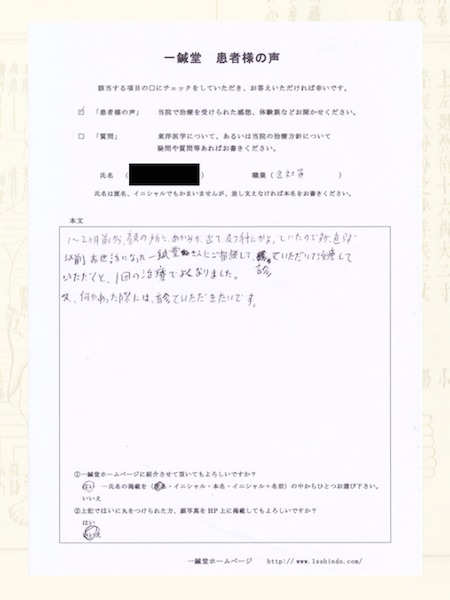 一鍼堂 患者様の声
該当する項目の□にチェックをしていただき、お答えいただければ幸いです。
☑ 「患者様の声」 当院で治療を受けられた感想、体験談などお聞かせください。
□ 「質問」 東洋医学について、あるいは当院の治療方針について
疑問や質問等あればお書きください。
氏名 ( ) 職業 (会社員)
氏名は匿名、イニシャルでもかまいませんが、差し支えなければ本名をお書きください。
本文
1〜2ヶ月前から、顔の所に、あかみが、出て皮フ科にかよっていたのですが、直らず
以前お世話になった一鍼堂さんにご相談して、診ていただいて治療して
いただくと、1回の治療でよくなりました。
又、何かあった際には、診ていただきたいです。
①一鍼堂ホームページに紹介させて頂いてもよろしいですか？
はい ―氏名の掲載を（匿名・イニシャル・本名・イニシャル＋名前）の中からひとつお選び下さい。
いいえ
②上記ではいに丸をつけられた方、顔写真をHP上に掲載してもよろしいですか？
はい
いいえ
一鍼堂ホームページ http://www.1sshindo.com/